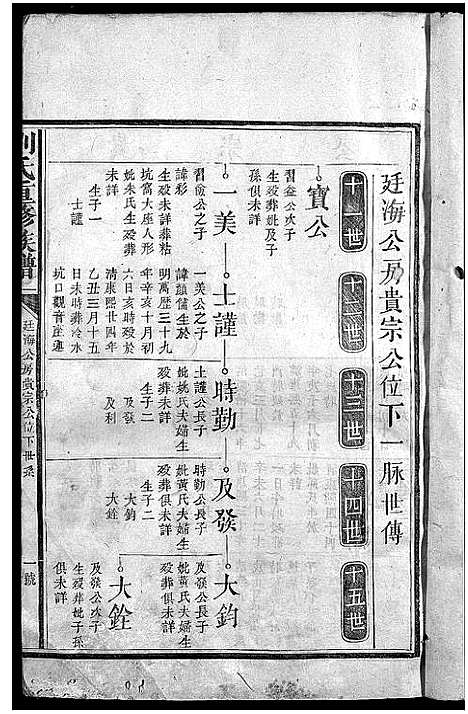 廷海公房貴宗公位下一脉世傳
十一世
十二世
十三世
十四世
十五世
寶公
習益公次子
生殁葬妣及子
孫俱未詳
一美
習儉公之子
諱彩
生殁未詳葬粘
坑窩大座人形
妣朱氏生殁葬
未詳
生子一
士謹
士謹
一美公之子
諱顏儒生於
明萬歷三十九
年辛亥十月初
六日亥時殁於
清康熙廿四年
乙丑三月十五
日未時葬冷水
坑口觀音座蓮
時勤
士謹公長子
妣姚氏夫婦生
殁葬未詳
生子二
及發
及利
及發
時勤公長子
妣黃氏夫婦生
殁葬俱未詳
生子二
大鈞
大銓
大鈞
及發公長子
妣黃氏夫婦生
殁葬俱未詳
大銓
及發公次子
生殁葬妣子孫
俱未詳
劉氏重修族譜
廷海公房貴宗公位下世系
一號